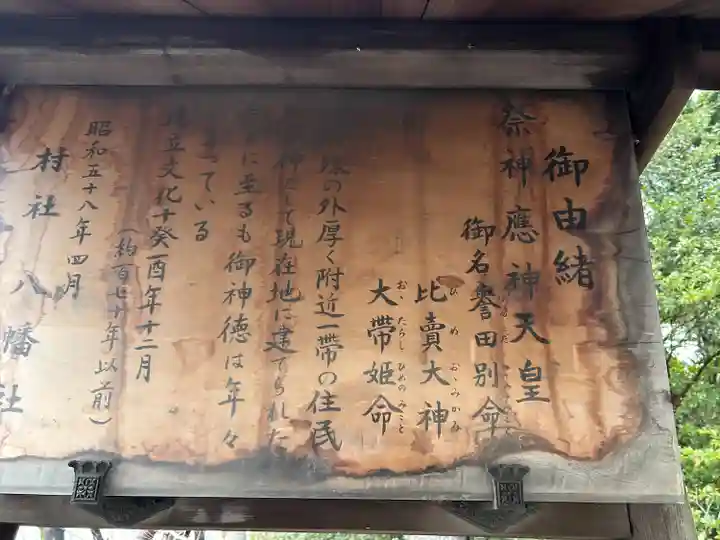 御由緒
祭神應神天皇
御名誉田別命
比賣大神
ひめ おゝみかみ
大帶姫命
おゝたらし ひめのみこと
の外厚く附近一帶の住民
して現在地に建てられた
に至るも御神徳は年々
ている
立文化十癸酉年十二月
(約百七十年以前)
昭和五十八年四月
村社八幡社